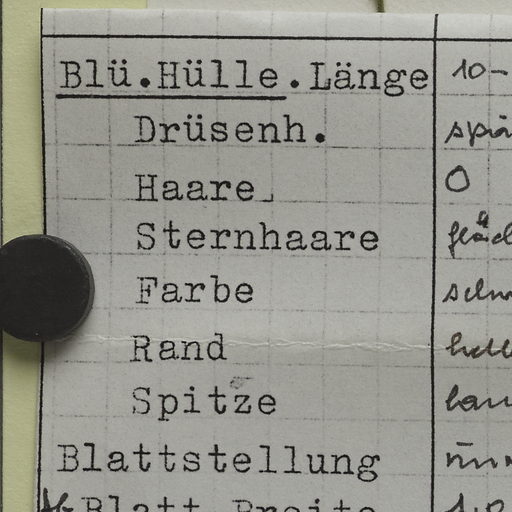 Blü.Hülle.Länge 10-
Drüsenh.
Haare 0
Sternhaare
Farbe
Rand
Spitze
Blattstellung
Blatt Breite